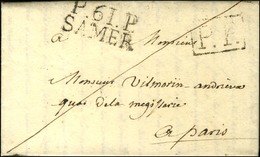 P. 61. P
SAMER
P.P.
Monsieur
a Monsieur Vilmorin andrieux
quai de la megisserie
a paris